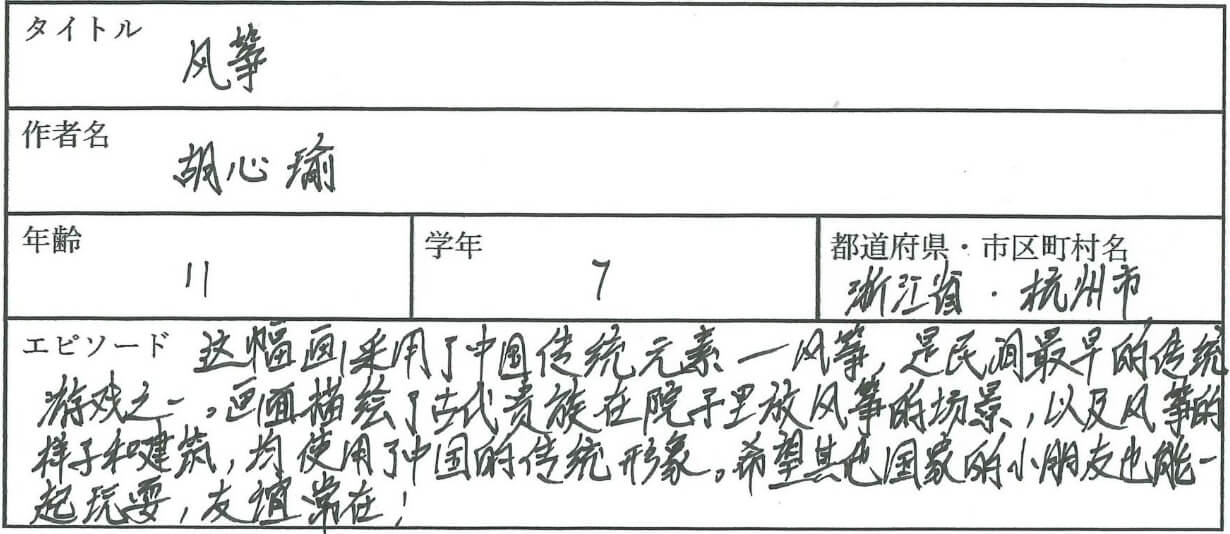 タイトル
风筝
作者名
胡心瑜
年齢
11
学年
7
都道府県・市区町村名
浙江省・杭州市
エピソード 这幅画采用了中国传统元素一风筝，是民间最早的传统
游戏之一。画面描绘了古代贵族在院子里放风筝的场景，以及风筝的
样子和建筑，均使用了中国的传统形象。希望其他国家的小朋友也能一
起玩耍，友谊常在！